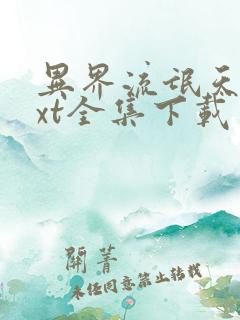 異界流氓天
xt全集下載
開菁
未任同意禁止转载